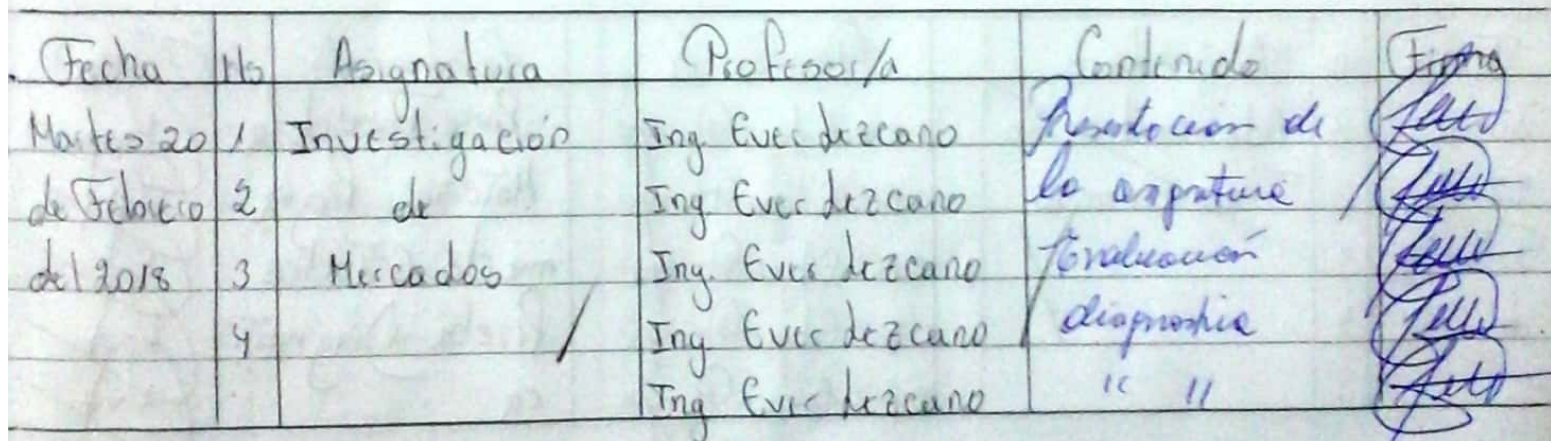 Fecha Hs Asignatura Profesor/a Contenido Firma
Martes 20 1 Investigación Ing. Ever Lezcano Presentación de
de Febrero 2 de Ing. Ever Lezcano la asignatura /
del 2018 3 Mercados Ing. Ever Lezcano Evaluación
4 / Ing Ever Lezcano / diagnostica
Ing Ever Lezcano " "